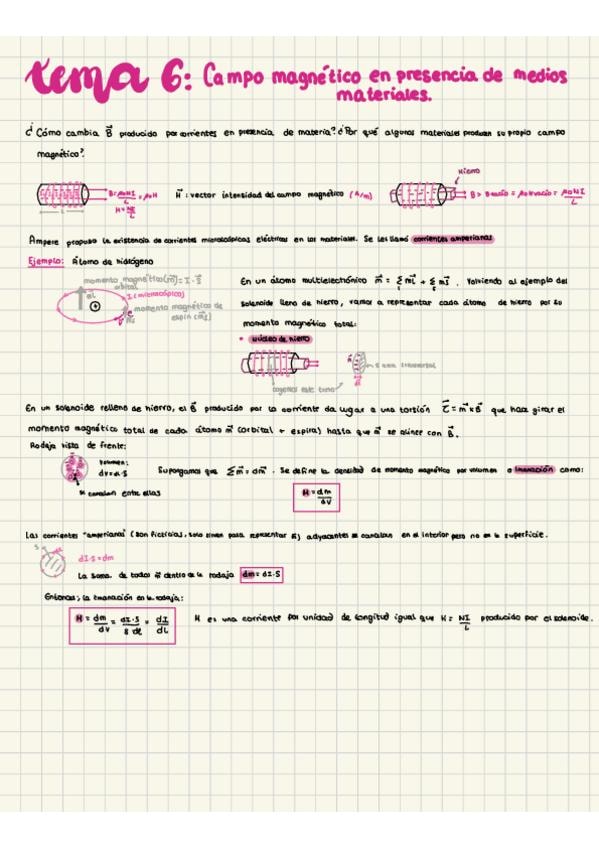 tema 6: Campo magnético en presencia de medios
materiales.
¿Cómo cambia B⃗ producido por corrientes en presencia de materia? ¿Por qué algunos materiales producen su propio campo
magnético?
Hierro
B = μ₀NI/L = μ₀H
H = NI/L
L
H⃗: vector intensidad del campo magnético (A/m)
B > Bvacío = μ₀NI/L
Ampere propuso la existencia de corrientes microscópicas eléctricas en los materiales. Se les llamó corrientes amperianas
Ejemplo: Átomo de hidrógeno
momento magnético (m⃗) = I · S⃗
orbital
I (microscópica)
momento magnético de
espín (m⃗s)
En un átomo multielectrónico m⃗ = Σ m⃗L + Σ m⃗s. Volviendo al ejemplo del
solenoide lleno de hierro, vamos a representar cada átomo de hierro por su
momento magnético total:
• núcleo de hierro
cogemos este trozo
En un solenoide relleno de hierro, el B⃗ producido por la corriente da lugar a una torsión τ⃗ = m⃗ × B⃗ que hace girar el
momento magnético total de cada átomo m⃗ (orbital + espira) hasta que m⃗ se alinee con B⃗.
Rodaja vista de frente:
volumen:
dv = dl · S
se cancelan entre ellas
Supongamos que Σm⃗ = dm⃗. Se define la densidad de momento magnético por volumen o imanación como:
M = dm/dV
Las corrientes "amperianas" (son ficticias, solo sirven para representar m⃗) adyacentes se cancelan en el interior pero no en la superficie.
S
dI · S = dm
La suma de todos m⃗ dentro de la rodaja dm = dI · S
Entonces, la imanación en la rodaja:
M = dm/dV = dI · S/S dl = dI/dL
M es una corriente por unidad de longitud igual que H = NI/L producido por el solenoide.